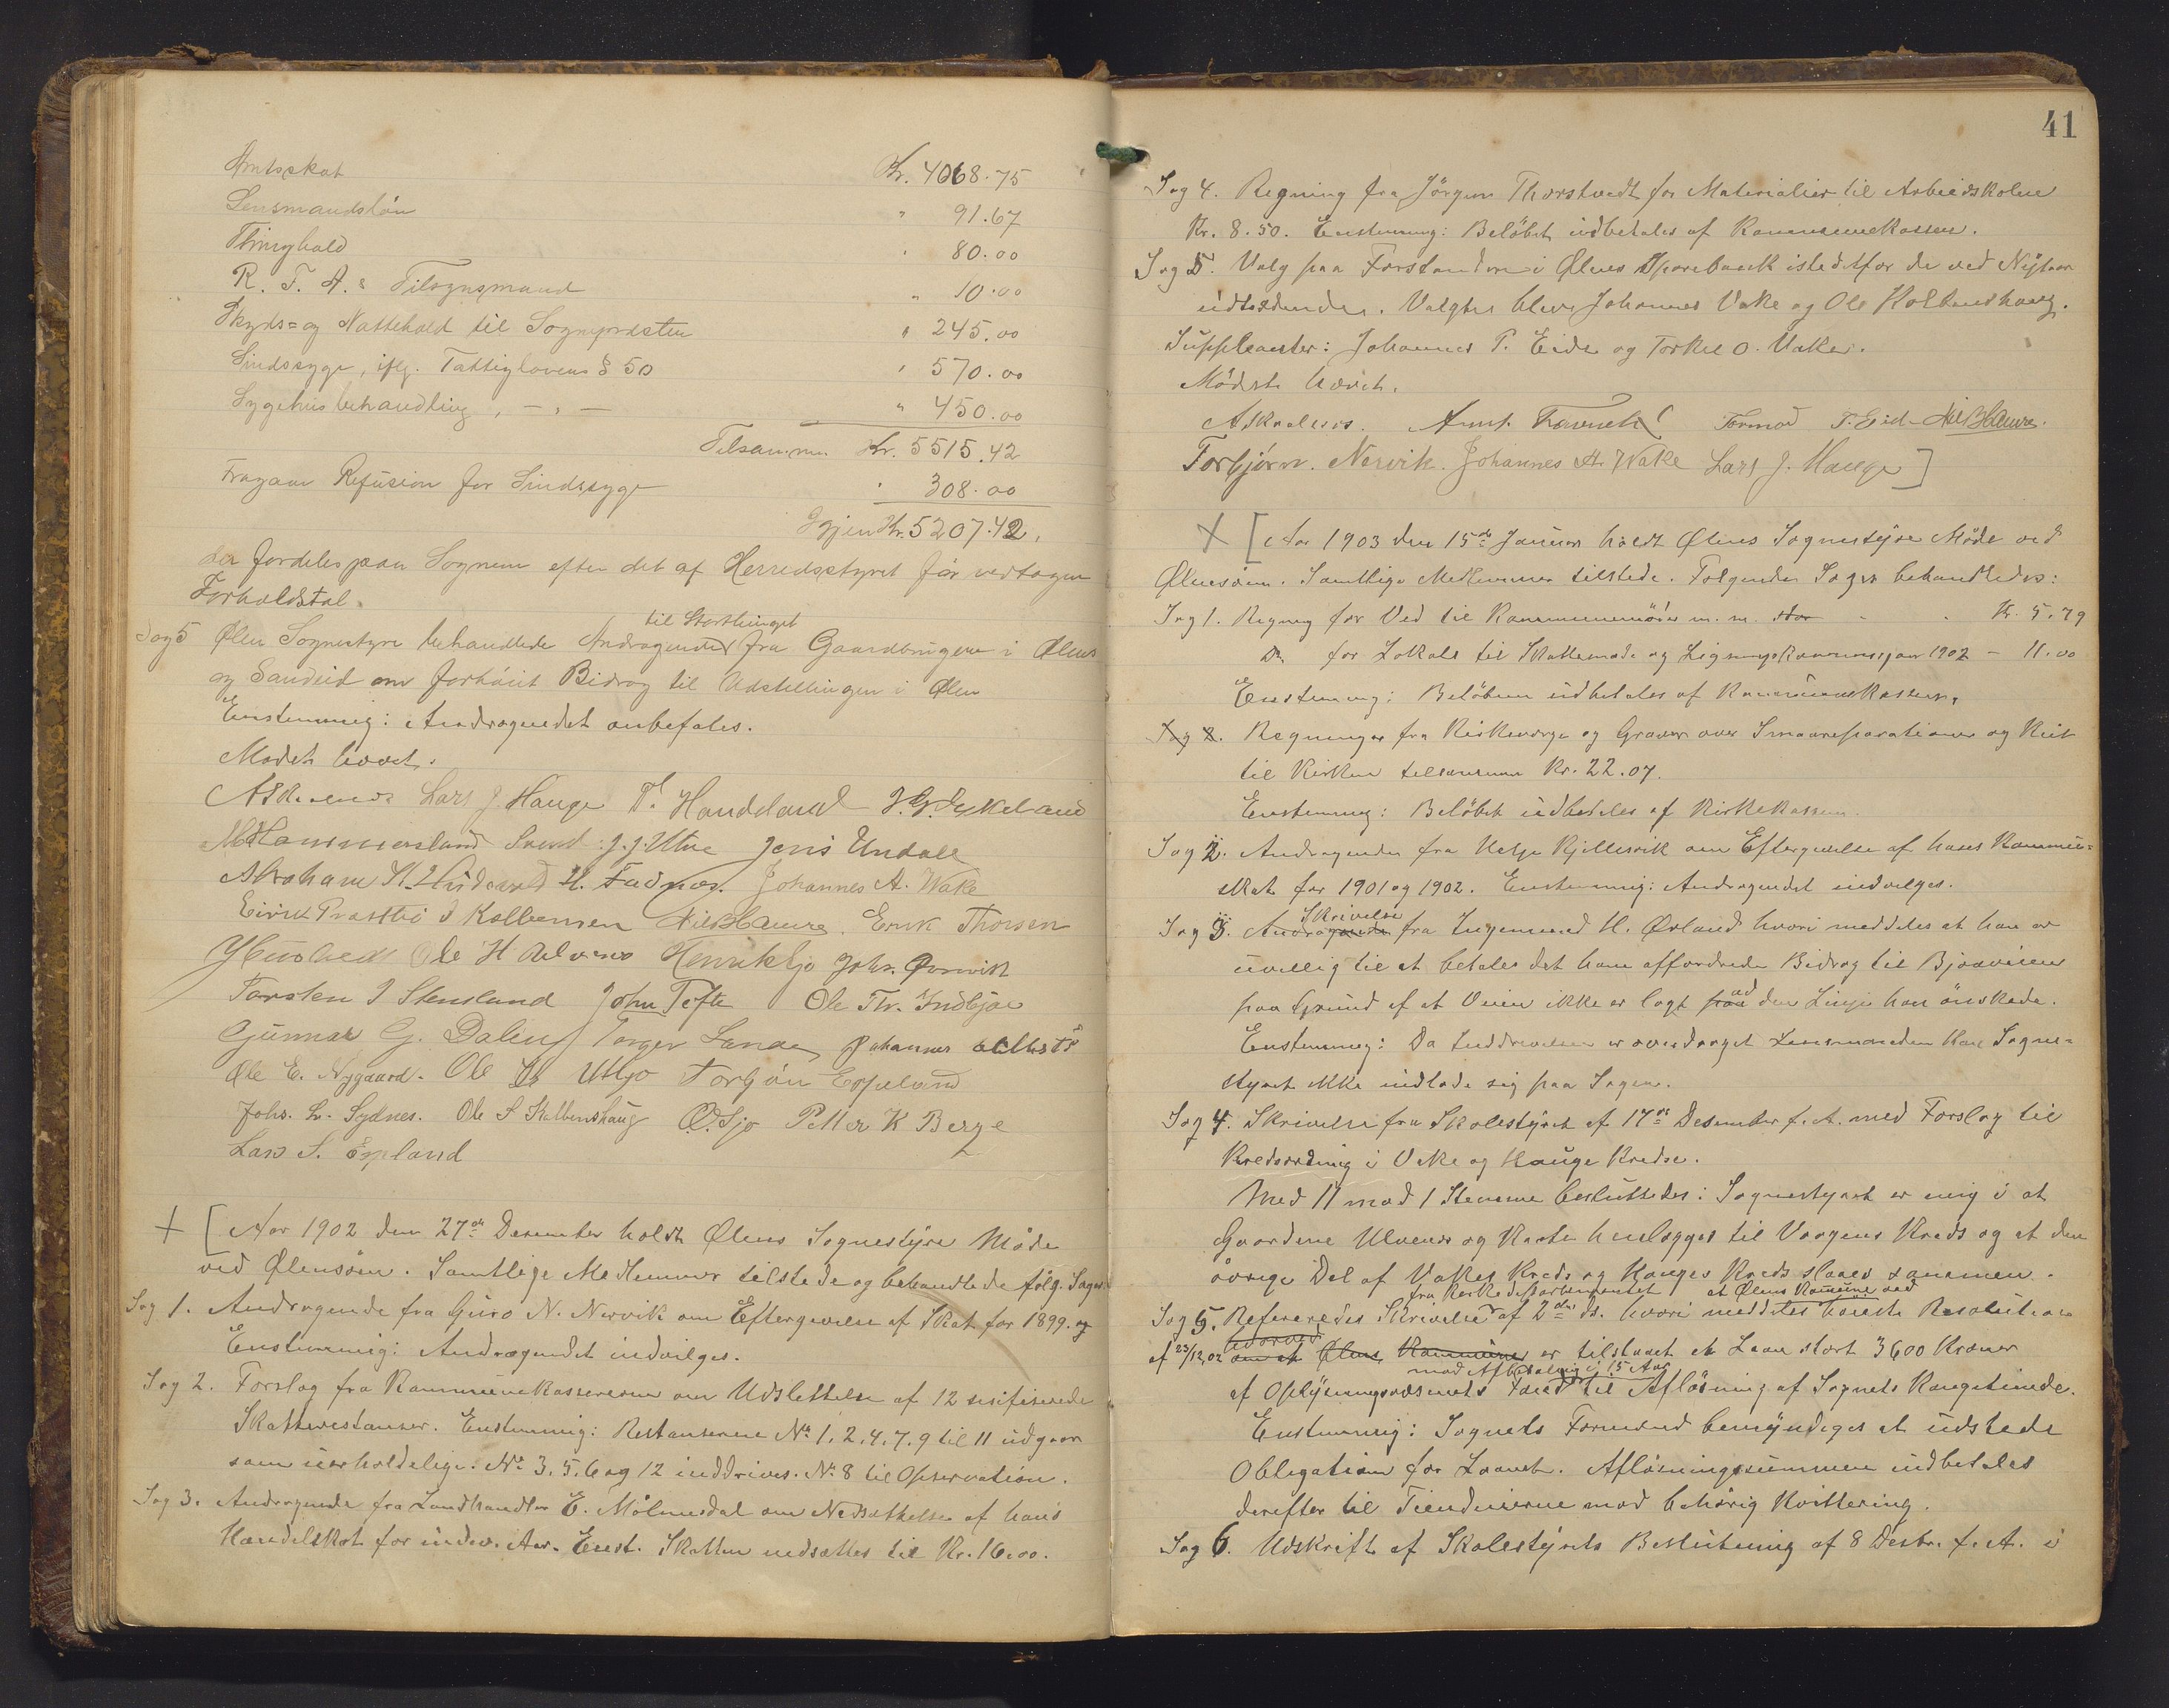 Amtsskat Kr. 4068.75
Lensmandsløn " 91.67
Thinghold " 80.00
R. T. A.s Tilsynsmand " 10.00
Skyds= og Nattehold til Sognepræsten " 245.00
Sindssyge, iflg. Fattiglovens § 50 " 570.00
Sygehusbehandling, — " — " 450.00
Tilsammen Kr. 5515.42
Fragaar Refusion for Sindssyge " 308.00
Igjen Kr. 5207.42.
der fordeles paa Sognene efter det af Herredsstyret før vedtagne
Forholdstal.
til Storthinget
Sag 5 Ølen Sognestyre behandlede Andragende fra Gaardbrugere i Ølen
og Sandeid om forhøiet Bidrag til Udstillingen i Ølen
Enstemmig: Andragendet anbefales.
Mødet hævet.
Lars J. Hauge T. Handeland
M Hammersland J. J. Utne Jens Undall
Abraham H. Fadnes. Johannes A. Wake
Nils Haure. Erik Thorsen
Ole H Henrik Joh.
Torsten J Stensland John Tofte Ole Th. Indbjoe
Gunnar G. Dalen Torger Lande Johannes
Ole E. Nygaard. Ole Utbjo Torbjön Espeland
Johs. L. Sydnes. Ole S Kolbenshaug O. Sjo Petter K Berge
Lars S. Espland
+ [ Aar 1902 den 27de Desember holdt Ølens Sognestyre Møde
ved Ølensøen. Samtlige Medlemmer tilstede og behandlede følg. Sager
Sag 1. Andragende fra Guro N. Nervik om Eftergivelse af Skat for 1899.
Enstemmig: Andragendet indvilges.
Sag 2. Forslag fra Kommunekassereren om Udslettelse af 12
Skatterestanser. Enstemmig: Restanserne No 1, 2, 4, 7, 9 til 11 udgaar
som uerholdelige. No 3, 5, 6 og 12 inddrives. No 8 til Observation.
Sag 3. Andragende fra Landhandler E. Mølmesdal om Nedsættelse af hans
Handelskat for indev. Aar. Enst. Skatten nedsættes til Kr. 16.00.
41
Sag 4. Regning fra Jørgen Thorstvedt for Materialier til Arbeidskolen
Kr. 8.50. Enstemmig: Beløbet udbetales af Kommunekassen.
Sag 5. Valg paa Forstandere i Ølens Sparebank istedetfor de ved Nytaar
udtrædende. Valgte blev Johannes Vake og Ole Kolbenshaug.
Suppleanter: Johannes T. Eide og Torkel O. Vake.
Mødet hævet.
Tormod T. Eid Nils Haure.
Torbjørn. Nervik. Johannes A. Wake Lars J. Hauge ]
+ [ Aar 1903 den 15de Januar holdt Ølens Sognestyre Møde ved
Ølensøen. Samtlige Medlemmer tilstede. Følgende Sager behandledes:
Sag 1. Regning for Ved til Kommunemøder m. m. Kr. 5.79
Do for Lokale til Skattemøde og Ligningskommisjon 1902 - 11.00
Enstemmig: Beløbene udbetales af Kommunekassen.
Sag 2. Regninger fra Kirkeværge og Graver over Smaareparationer og
til Kirken tilsammen Kr. 22.07.
Enstemmig: Beløbet udbetales af Kirkekassen.
Sag 2. Andragende fra Helge Kjellesvik om Eftergivelse af hans Kommune=
skat for 1901 og 1902. Enstemmig: Andragendet indvilges.
Skrivelse
Sag 3. Andragende fra Ingemund H. Ørland hvori meddeles at han er
uvillig til at betale det ham affordrede Bidrag til Bjoaveien
ad
paa Grund af at Veien ikke er lagt paa den Linje han ønskede.
Enstemmig: Da Inddrivelsen er overdraget Lensmanden kan Sogne=
styret ikke indlade sig paa Sagen.
Sag 4. Skrivelse fra Skolestyret af 17de Desember f. A. med Forslag til
Kredsordning i Vake og Hauge Kredse.
Med 11 mod 1 Stemme besluttedes: Sognestyret er enig i at
Gaardene Ulvenes og Kaate henlægges til Vaagens Kreds og at den
øvrige Del af Vakes Kreds og Hauges Kreds slaaes sammen.
fra Kirkedepartementet at Ølens Kommune ved
Sag 5. Refereredes Skrivelse af 2den ds. hvori meddeles høieste Resolution
hvorved
af 23/12,02 om at Ølens Kommune er tilstaaet et Laan stort 3600 Kroner
mod Afbetaling i 15 Aar
af Oplysningsvæsenets Fond til Afløsning af Sognets Kongetiende.
Enstemmig: Sognets Formand bemyndiges at udstede
Obligation for Laanet. Afløsningssummen udbetales
derefter til Tiendeeierne mod behørig Kvittering.
Sag 6. Udskrift af Skolestyrets Beslutning af 8 Desbr. f. A. i